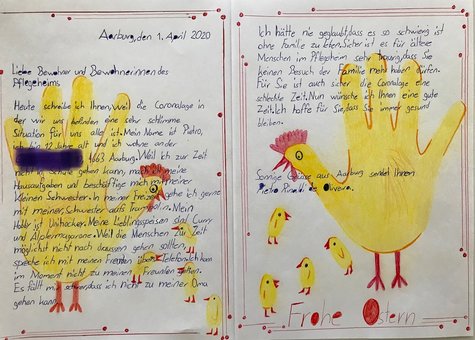 Aarburg, den 1. April 2020
Liebe Bewohner und Bewohnerinnen des
Pflegeheims
Heute schreibe ich Ihnen, weil die Coronalage in
der wir uns befinden eine sehr schlimme
Situation für uns alle ist. Mein Name ist Pietro,
ich bin 12 Jahre alt und ich wohne an der
4663 Aarburg. Weil ich zur Zeit
nicht in Schule gehen kann, mach ich meine
Hausaufgaben und beschäftige mich mit meiner
kleinen Schwester. In meiner Freizeit gehe ich gerne
mit meiner Schwester aufs Trampolin. Mein
Hobby ist Unihockey. Meine Lieblingsspeisen sind Curry
und Älplermagronen. Weil die Menschen zur Zeit
möglichst nicht nach draussen gehen sollten,
spreche ich mit meinen Freunden über Telefon. Ich kann
im Moment nicht zu meinen Freunden gehen.
Es fällt mir schwer, dass ich nicht zu meiner Oma
gehen kann.
Ich hätte nie geglaubt, dass es so schwierig ist
ohne Familie zu leben. Sicher ist es für ältere
Menschen im Pflegeheim sehr traurig, dass Sie
keinen Besuch der Familie mehr haben dürfen.
Für Sie ist auch sicher die Coronalage eine
schlechte Zeit. Nun wünsche ich Ihnen eine gute
Zeit. Ich hoffe für Sie, dass Sie immer gesund
bleiben.
Sonnige Grüsse aus Aarburg sendet Ihnen
Pietro de Oliveira.
Frohe Ostern